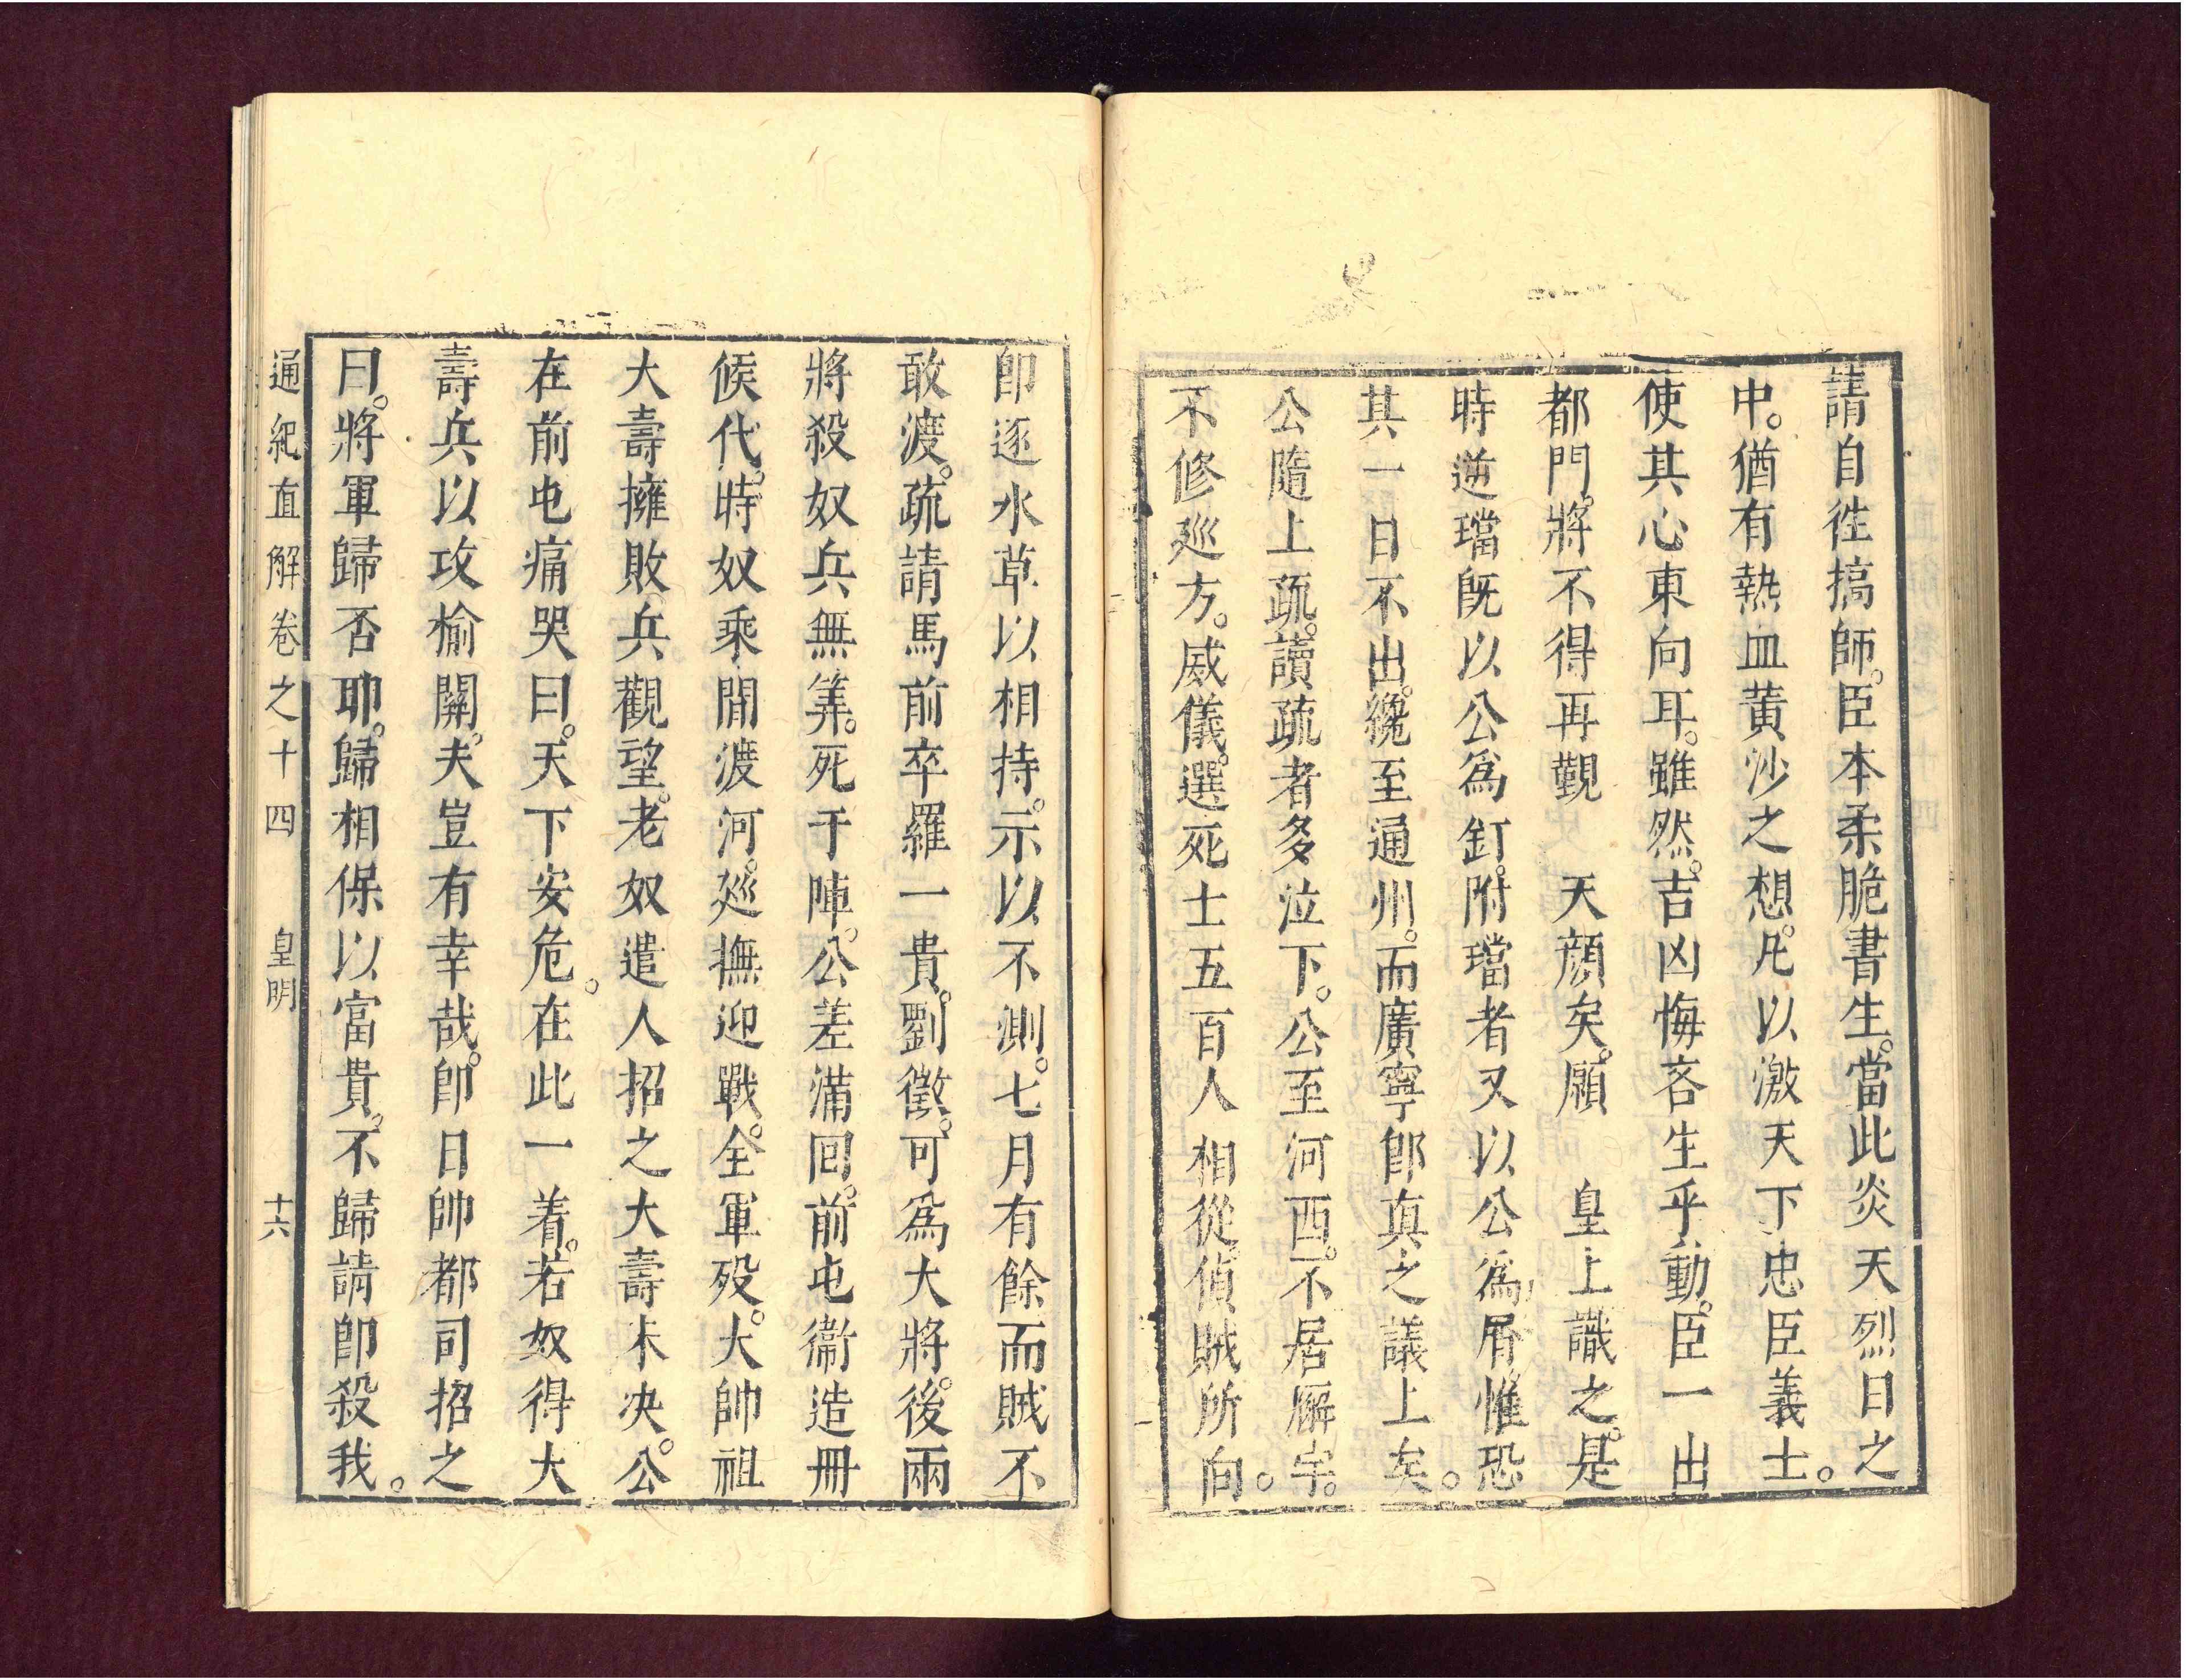 請自徃搞師。臣本柔脆書生。當此炎天烈日之
中。猶有熱血黄沙之想。凡以激天下忠臣義士。
使其心東向耳。雖然。吉凶悔吝生乎動。臣一出
都門。將不得再覲　天顔矣。願　皇上識之。是
時逆璫既以公爲釘。附璫者又以公爲屑。惟恐
其一日不出。纔至通州。而廣寧郎真之議上矣。
公隨上疏。讀疏者多泣下。公至河西。不居廨宇。
不修廵方。威儀。選死士五百人相從。偵賊所向。
卽逐水草以相持。示以不測。七月有餘而賊不
敢渡。疏請馬前卒羅一貴。劉徵。可爲大將。後兩
將殺奴兵無筭。死于陣。公差滿回。前屯衞造冊
候代。時奴乘間渡河。廵撫迎戰。全軍殁。大帥祖
大壽擁敗兵觀望。老奴遣人招之大壽未决。公
在前屯痛哭曰。天下安危。在此一着。若奴得大
壽兵以攻榆關。夫豈有幸哉。卽日帥都司招之
曰。將軍歸否耶。歸相保以富貴。不歸請卽殺我。
通紀直解卷之十四　皇明　十六